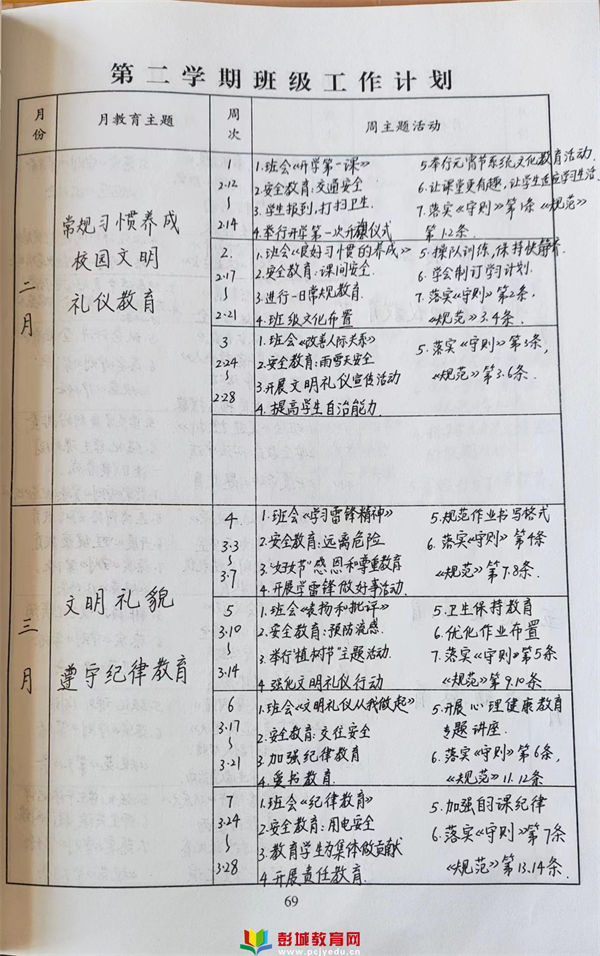 第二学期班级工作计划
月份 月教育主题 周次 周主题活动
二月
常规习惯养成
校园文明
礼仪教育
1
2.12
~
2.14
1.班会《开学第一课》
2.安全教育:交通安全
3.学生报到,打扫卫生.
4.举行开学第一次升旗仪式
5.举行元宵节系统文化教育活动.
6.让课堂更有趣,让学生适应学习生活.
7.落实《守则》第1条《规范》
第1.2条.
2.
2.17
~
2.21
1.班会《良好习惯的养成》
2.安全教育:课间安全
3.进行一日常规教育.
4.班级文化布置
5.操队训练,保持快静齐.
6.学会制订学习计划.
7.落实《守则》第2条,
《规范》3.4条.
3
2.24
~
2.28
1.班会《改善人际关系》
2.安全教育:雨雪天安全
3.开展文明礼仪宣传活动
4.提高学生自治能力.
5.落实《守则》第3条,
《规范》第3.6条.
三月
文明礼貌
遵守纪律教育
4.
3.3
~
3.7
1.班会《学习雷锋精神》
2.安全教育:远离危险.
3."妇女节"感恩和尊重教育
4.开展学雷锋做好事活动.
5.规范作业书写格式
6.落实《守则》第4条
《规范》第7.8条.
5
3.10
~
3.14
1.班会《表扬和批评》
2.安全教育:预防流感.
3.举行"植树节"主题活动.
4.强化文明礼仪行动
5.卫生保持教育
6.优化作业布置
7.落实《守则》第5条
《规范》第9.10条
6
3.17
~
3.21
1.班会《文明礼仪从我做起》
2.安全教育:交往安全
3.加强纪律教育
4.爱书教育.
5.开展心理健康教育
专题讲座.
6.落实《守则》第6条,
《规范》11.12条
7
3.24
~
3.28
1.班会《纪律教育》
2.安全教育:用电安全
3.教育学生为集体做贡献
4.开展责任教育.
5.加强自课纪律
6.落实《守则》第7条
《规范》第13.14条.
69
彭城教育网
www.pcjyedu.cn